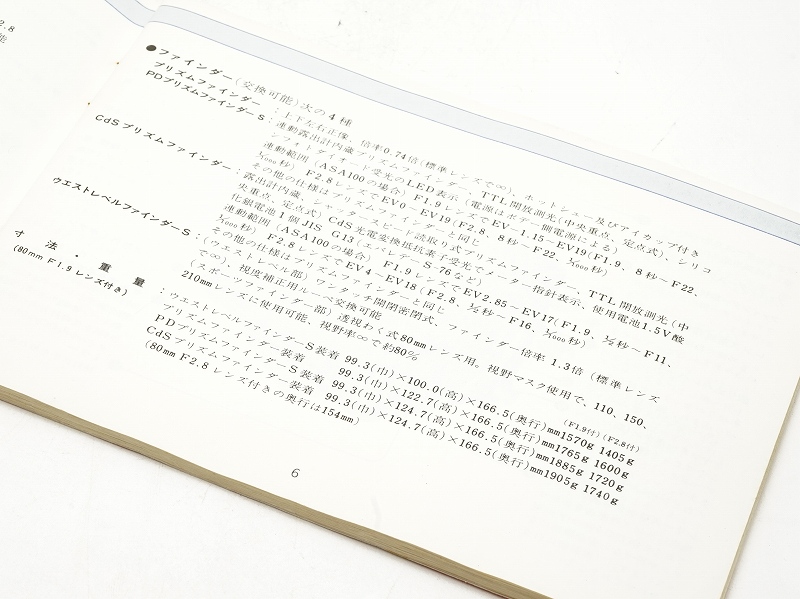 2.8
能
●ファインダー(交換可能)次の4種
プリズムファインダー : 上下左右正像、倍率0.74倍(標準レンズで∞)、ホットシュー及びアイカップ付き
PDプリズムファインダーS : 連動露出計内蔵プリズムファインダー、TTL開放測光(中央重点、定点式)、シリコ
ンフォトダイオード受光のLED表示(電源はボデー側電源による)
連動範囲(ASA100の場合) F1.9レンズでEV-1.15-EV19(F1.9、8秒〜F22、
1/1000秒) F2.8レンズでEV0-EV19(F2.8、8秒〜F22、1/1000秒)
その他の仕様はプリズムファインダーと同じ
CdSプリズムファインダー : 露出計内蔵、シャッタースピード読取り式プリズムファインダー、TTL開放測光(中
央重点、定点式) CdS光電変換抵抗素子受光でメーター指針表示、使用電池1.5V酸
化銀電池1個JIS G13(エバレデーS-76など)
連動範囲(ASA100の場合) F1.9レンズでEV2.85-EV17(F1.9、1/2秒〜F11、
1/1000秒) F2.8レンズでEV4-EV18(F2.8、1/2秒〜F16、1/1000秒)
その他の仕様はプリズムファインダーと同じ
ウエストレベルファインダーS : (ウエストレベル部)ワンタッチ開閉密閉式、ファインダー倍率 1.3倍(標準レンズ
で∞)、視度補正用ルーペ交換可能
(スポーツファインダー部)透視わく式80mmレンズ用。視野マスク使用で、110、150、
210mmレンズに使用可能、視野率∞で約80%
寸法・重量 : ウエストレベルファインダーS装着 99.3(巾)×100.0(高)×166.5(奥行)mm1570g 1405g
(F1.9付)(F2.8付)
(80mm F1.9レンズ付き) プリズムファインダー装着 99.3(巾)×122.7(高)×166.5(奥行)mm1765g 1600g
PDプリズムファインダーS装着 99.3(巾)×124.7(高)×166.5(奥行)mm1885g 1720g
CdSプリズムファインダー装着 99.3(巾)×124.7(高)×166.5(奥行)mm1905g 1740g
(80mm F2.8レンズ付きの奥行は154mm)
6